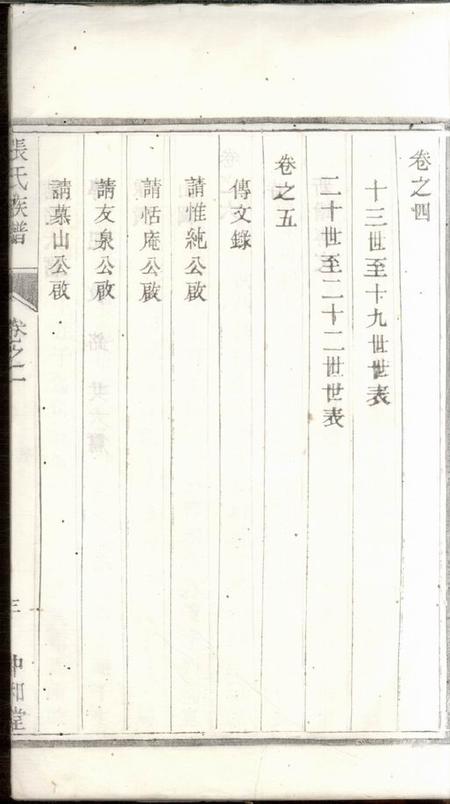 卷之四
十三世至十九世世表
二十世至二十二世世表
卷之五
傳文錄
請惟純公啟
請恬庵公啟
請友泉公啟
請慕山公啟
張氏族譜
卷之二
三
中和堂